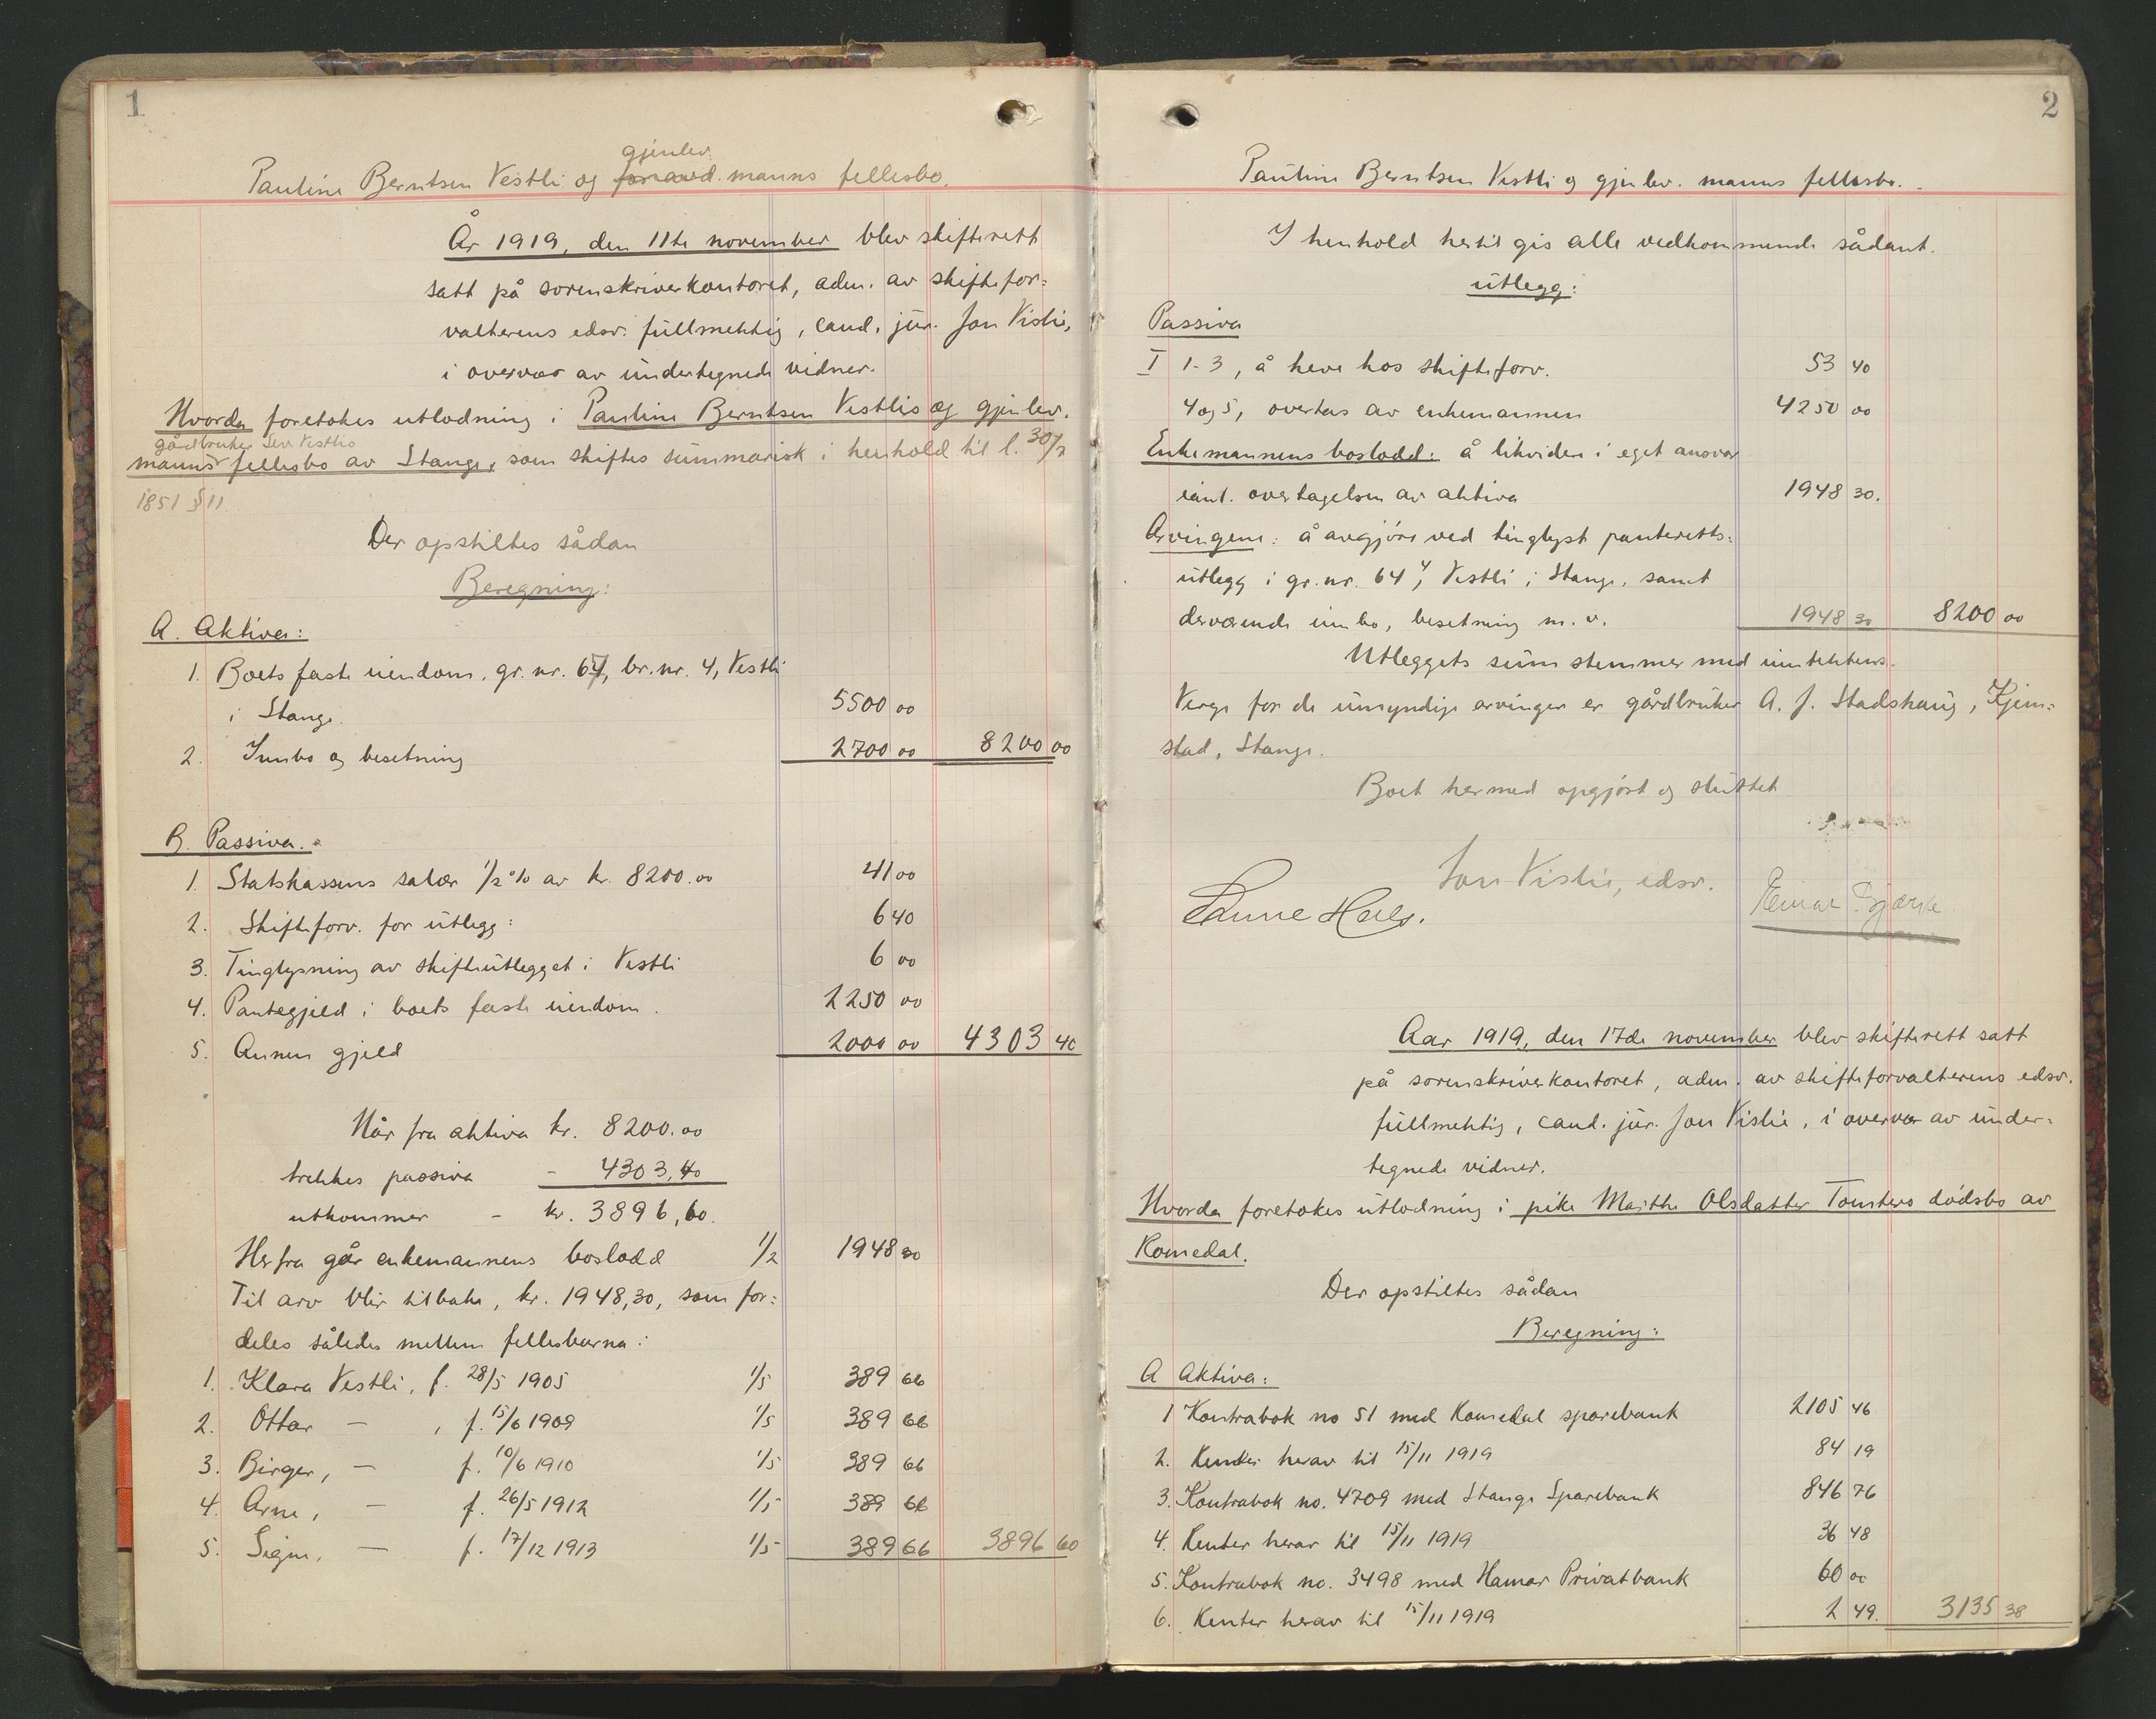 1
gjenlev.
Pauline Berntsen Vestli og manns fellesbo.
År 1919, den 11te november blev skifterett
satt på sorenskriverkontoret, adm. av skiftefor:
valterens edsv. fullmektig, cand. jur. Jon Vislie,
i overvær av undertegnede vidner.
Hvorda foretokes utlodning i Pauline Berntsen Vestlis og gjenlev.
gårdbruker Vestlis
manns fellesbo av Stange, som skiftes summarisk i henhold til l. 30/7
1851 § 11.
Der opstiltes sådan
Beregning:
A. Aktiva:
1. Boets faste eiendom, gr. nr. 64, br. nr. 4, Vestli
i Stange. 5500 00
2. Innbo og besetning 2700 00 8200 00
B. Passiva.
1. Statskassens salær 1/2 % av kr. 8200.00 41 00
2. Skifteforv. for utlegg: 6 40
3. Tinglysning av skifteutlegget i Vestli 6 00
4. Pantegjeld i boets faste eiendom. 2250 00
5. Annen gjeld 2000 00 4303 40
Når fra aktiva kr. 8200.00
trekkes passiva - 4303,40
utkommer - kr. 3896,60.
Herfra går enkemannens boslodd 1/2 1948 30
Til arv blir tilbake, kr. 1948,30, som for:
deles således mellem fellesbarna:
1. Klara Vestli, f. 28/5 1905 1/5 389 66
2. Ottar — , f. 15/6 1909 1/5 389 66
3. Birger, — f. 10/6 1910 1/5 389 66
4. Arne, — f. 26/5 1912 1/5 389 66
5. Signe, — f. 17/12 1913 1/5 389 66 3896 60
2
Pauline Berntsen Vestli og gjenlev. manns fellesbo.
I henhold hertil gis alle vedkommende sådant.
utlegg:
Passiva
I 1-3, å heve hos skifteforv. 53 40
4 og 5, overtas av enkemannen 4250 00
Enkemannens boslodd: å likvidere i eget ansvar
overtagelsen av aktiva 1948 30.
Arvingene: å avgjøre ved tinglyst panteretts:
utlegg i gr. nr. 64 4, Vestli i Stange, samt
derværende innbo, besetning m. v. 1948 30 8200 00
Utleggets sum stemmer med inntektens.
Verge for de umyndige arvinger er gårdbruker A. J. Stadshaug, Kjem:
stad, Stange.
Boet hermed opgjort og sluttet
Jon Vislie, edsv.
Einar
Aar 1919, den 17de november blev skifterett satt
på sorenskriverkontoret, adm. av skifteforvalterens edsv.
fullmektig, cand. jur. Jon Vislie, i overvær av under:
tegnede vidner.
Hvorda foretokes utlodning i pike Marthe Olsdatter dødsbo av
Romedal.
Der opstiltes sådan
Beregning:
A Aktiva:
1 Kontrabok no 51 med Romedal sparebank 2105 46
2. Renter herav til 15/11 1919 84 19
3. Kontrabok no. 4709 med Stange Sparebank 846 76
4. Renter herav til 15/11 1919 36 48
5. Kontrabok no. 3498 med Hamar Privatbank 60 00
6. Renter herav til 15/11 1919 2 49. 3135 38